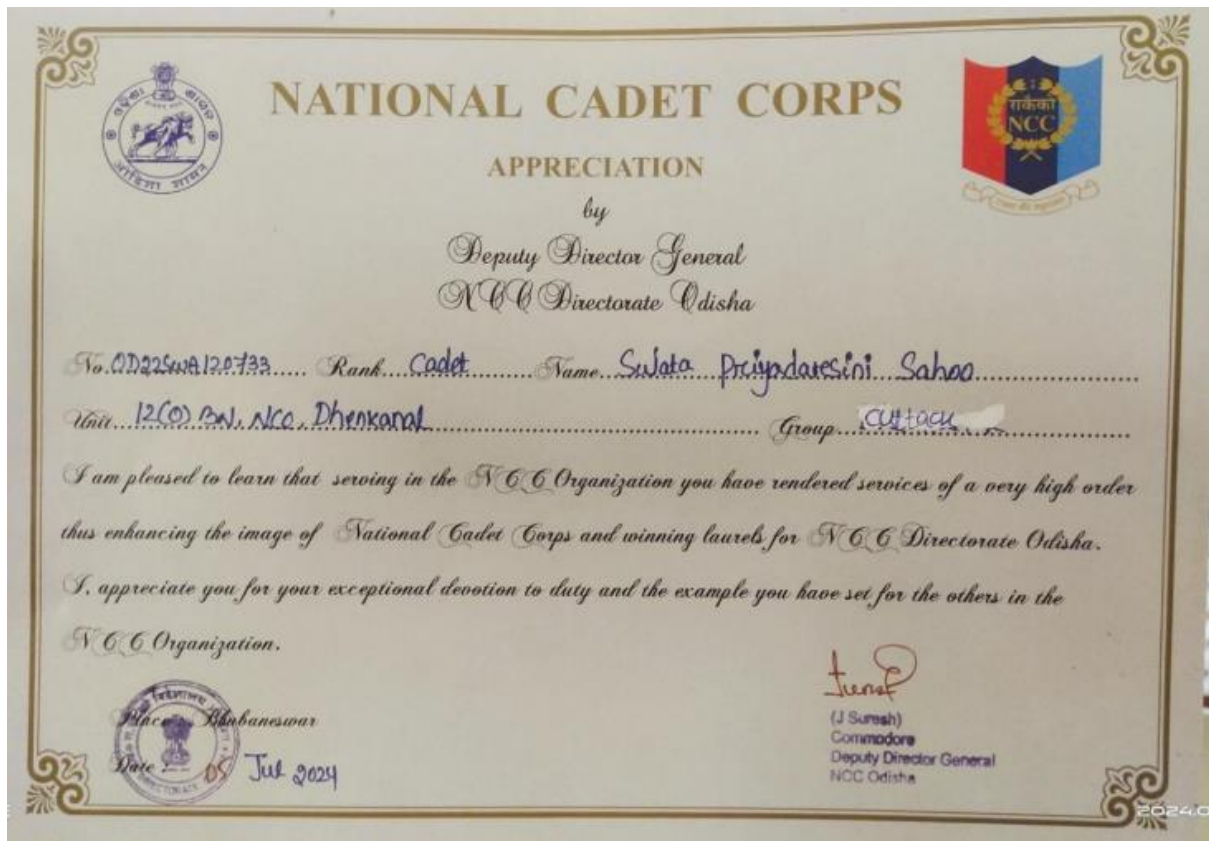 ଓଡ଼ିଶା ଶାସନ
ओड़िशा शासन
NATIONAL CADET CORPS
राकैको
NCC
APPRECIATION
by
Deputy Director General
NCC Directorate Odisha
No. OD22SWA120733 Rank Cadet Name Sujata Priyadaresini Sahoo
Unit 12(O) BN, NCC, Dhenkanal Group Cuttack
I am pleased to learn that serving in the NCC Organization you have rendered services of a very high order
thus enhancing the image of National Cadet Corps and winning laurels for NCC Directorate Odisha.
I, appreciate you for your exceptional devotion to duty and the example you have set for the others in the
NCC Organization.
Place : Bhubaneswar
Date : 05 Jul 2024
(J Suresh)
Commodore
Deputy Director General
NCC Odisha
2024.0